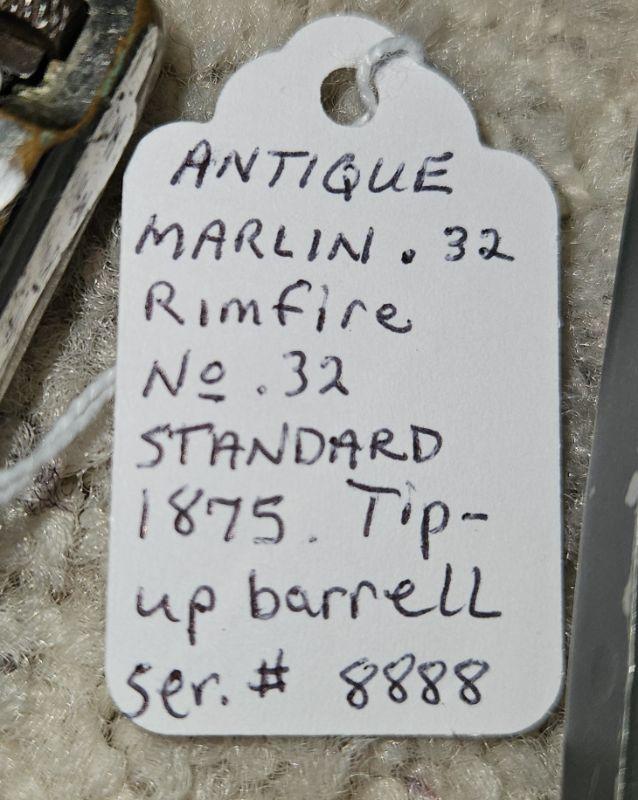 ANTIQUE
MARLIN . 32
Rimfire
Nº . 32
STANDARD
1875. Tip-
up barrell
ser. # 8888